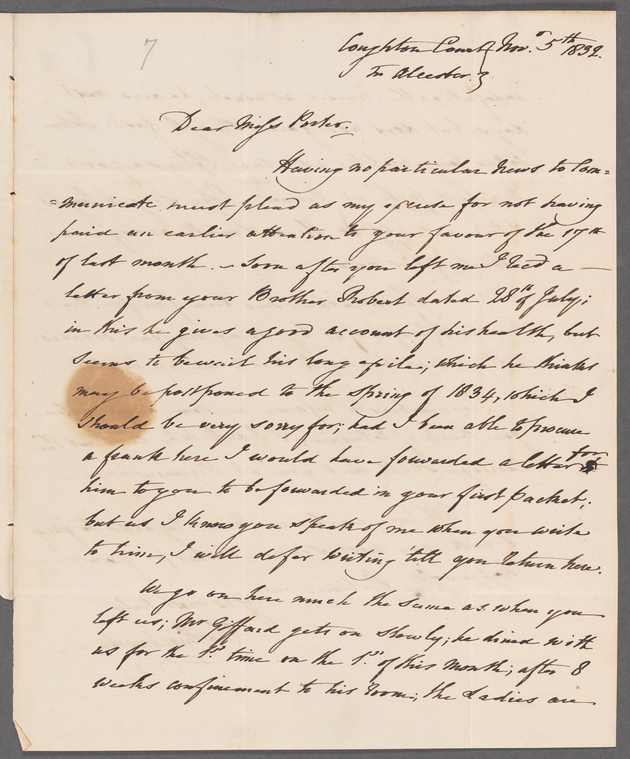 7
Coughton Court } Nov.r 5th 1832.
nr Alcester. }
Dear Miss Porter.
Having no particular News to Com=
=municate must plead as my excuse for not having
paid an earlier attention to your favour of the 17th
of last month. – Soon after you left me I recd a
letter from your Brother Robert dated 28th of July;
in this he gives a good account of his health, but
seems to bewail his long exile; which he thinks
may be postponed to the Spring of 1834, which I
should be very sorry for; had I been able to procure
a frank here I would have forwarded a letter for
him to you to be forwarded in your first packet;
but as I know you speak of me when you write
to him, I will defer writing 'till you return here.
We go on here much the same as when you
left us; Mr Giffard gets on slowly; he dined with
us for the 1st time on the 1st of this month; after 8
weeks confinement to his room; the Ladies are